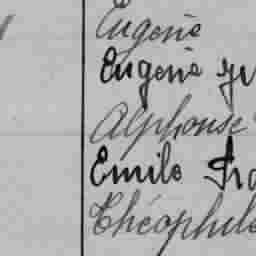 Eugène
Eugène
Alphonse
Emile
Théophile